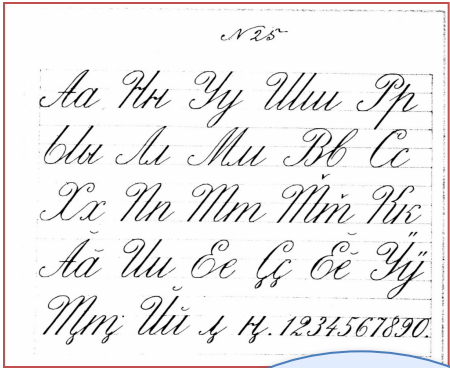 № 25
Аа Нн Уу Шш Рр
Ыы Лл Мм Вв Сс
Хх Пп Тт Т̌т̌ Кк
Ӑӑ Ии Ее Ҫҫ Ӗӗ Ӳӳ
Т̨т̨ Йй л̨ н̨. 1234567890.